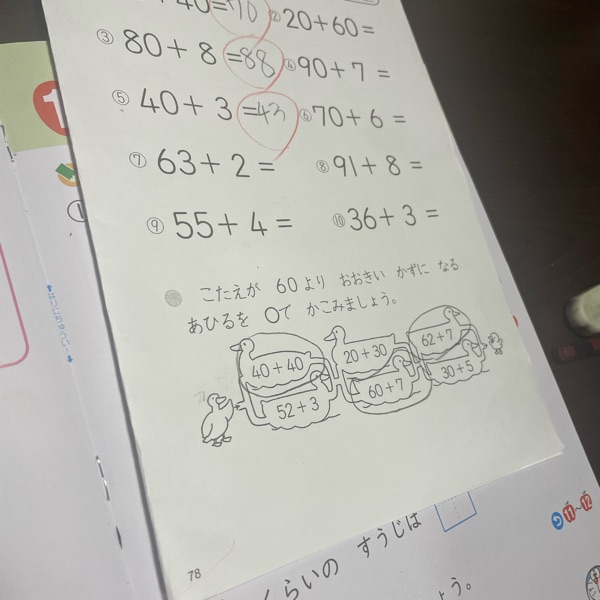 40=70 ② 20+60=
③ 80+8=88 ④ 90+7=
⑤ 40+3=43 ⑥ 70+6=
⑦ 63+2= ⑧ 91+8=
⑨ 55+4= ⑩ 36+3=
こたえが 60より おおきい かずに なる
あひるを ○で かこみましょう。
40+40 20+30 62+7
52+3 60+7 30+5
78
はりにちゅうい
くらいの すうじは
ょう。
11~12